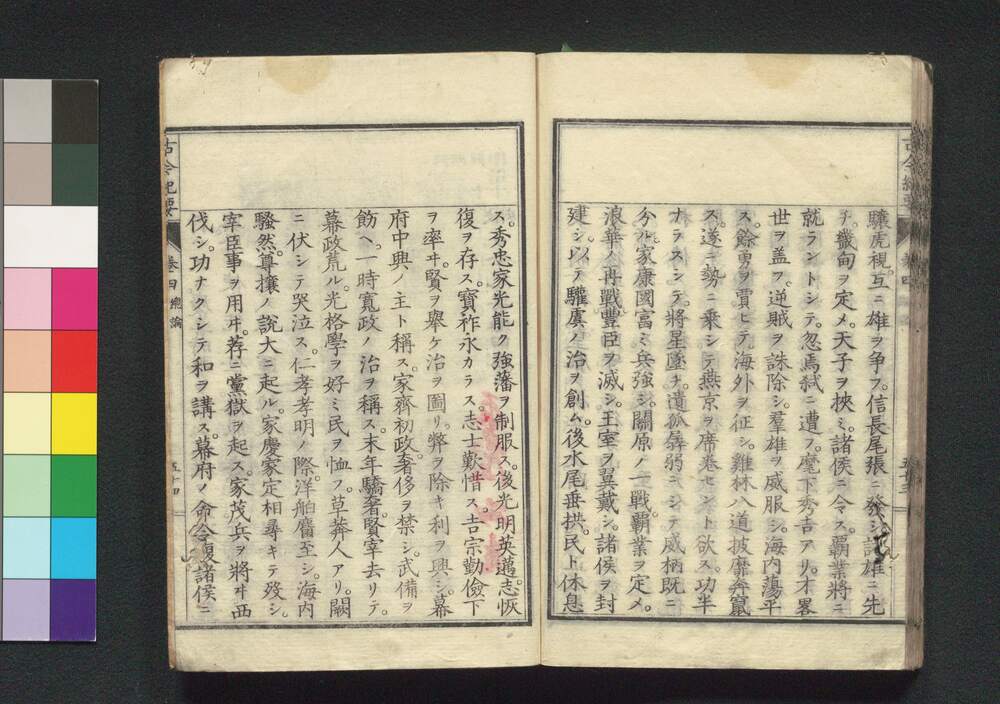 驤虎視。互ニ雄ヲ爭フ。信長尾張ニ發シ。諸雄ニ先
チ。畿甸ヲ定メ。天子ヲ挾ミ。諸侯ニ令ス。覇業將ニ
就ラントシテ。忽焉弑ニ遭フ。麾下秀吉アリ。才畧
世ヲ盖フ。逆賊ヲ誅除シ。羣雄ヲ威服シ。海内蕩平
ス。餘勇ヲ賈ヒテ。海外ヲ征シ。雞林八道披靡奔竄
ス。遂ニ勢ニ乘シテ燕京ヲ席巻セント欲ス。功半
ナラスシテ。將星墜チ。遺孤孱弱ニシテ。威柄既ニ
分ル。家康國富ミ兵強シ。關原ノ一戰。覇業ヲ定メ。
浪華ノ再戰。豐臣ヲ滅シ。王室ヲ翼戴シ。諸侯ヲ封
建シ。以テ驩虞ノ治ヲ創ム。後水尾垂拱。民ト休息
ス。秀忠家光能ク強藩ヲ制服ス。後光明英邁。志恢
復ヲ存ス。寶祚永カラス。志士歎惜ス。吉宗勤儉下
ヲ率ヰ賢ヲ舉ケ治ヲ圖リ。弊ヲ除キ利ヲ興シ。幕
府中興ノ主ト稱ス。家齊初政。奢侈ヲ禁シ。武備ヲ
飭ヘ。一時寬政ノ治ヲ稱ス。末年驕奢。賢宰去リテ。
幕政荒ル。光格學ヲ好ミ民ヲ恤フ。草莽人アリ。闕
ニ伏シテ哭泣ス。仁孝孝明ノ際。洋舶麕至シ。海内
騷然。尊攘ノ說大ニ起ル。家慶家定相尋キテ歿シ。
宰臣事ヲ用ヰ。荐ニ黨獄ヲ起ス。家茂兵ヲ將ヰ西
伐シ。功ナクシテ和ヲ講ス。幕府ノ命令復諸侯ニ
古今紀要
卷四 總論
五十四